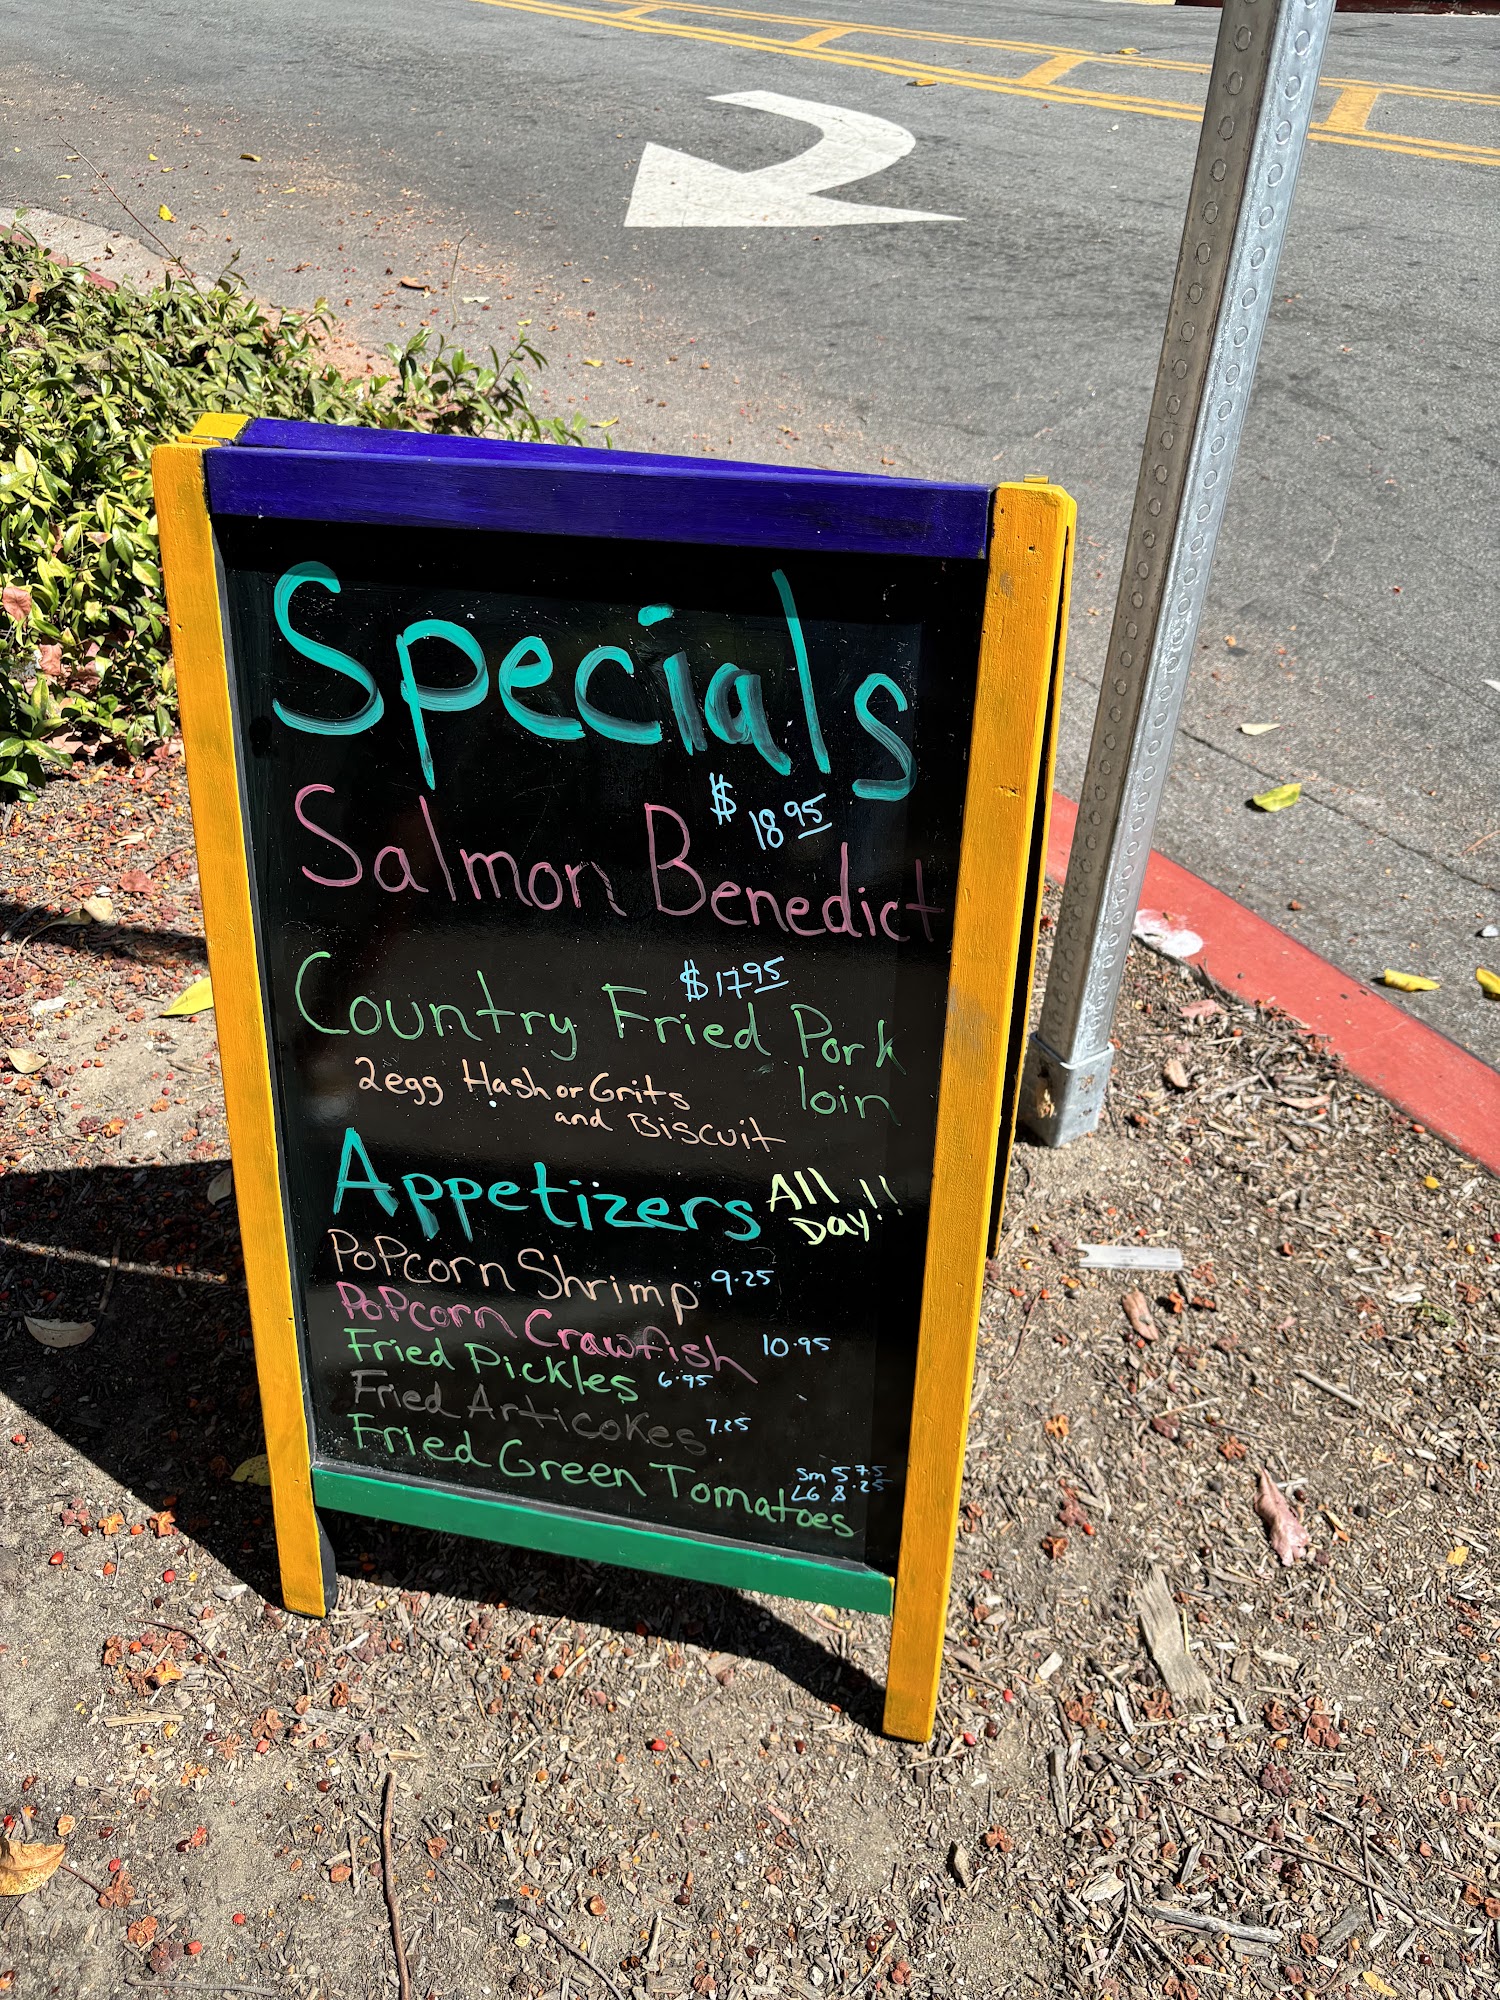 Specials
$ 18 95
Salmon Benedict
$ 17 95
Country Fried Pork
loin
2egg Hash or Grits
and Biscuit
Appetizers All
Day!!
PoPcorn Shrimp 9.25
PoPcorn Crawfish 10.95
Fried Pickles 6.95
Fried Articokes 7.25
Fried Green Tomatoes
Sm 5.75
LG 8.25